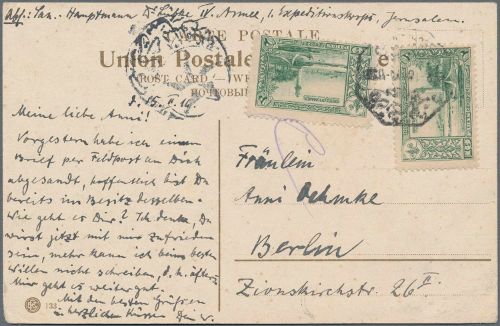 Abs: San. Hauptmann Dr. IV. Armee, 1. Expeditionskorps, Jerusalem.
CARTE POSTALE
Union Postale
POST CARD
Meine liebe Anni!
Vorgestern habe ich einen
Brief per Feldpost an Dich
abgesandt, hoffentlich bist Du
bereits im Besitz desselben.
Wie geht es Dir? Ich denke, Du
wirst jetzt mit mir zufrieden
sein, mehr kann ich beim besten
Willen nicht schreiben, d. h. öfter.
Mir geht es weiter gut.
Mit den besten Grüßen
u. herzlichen Küssen Dein W.
Fräulein
Anni Oehmke
Berlin
Zionskirchstr. 26 II
133